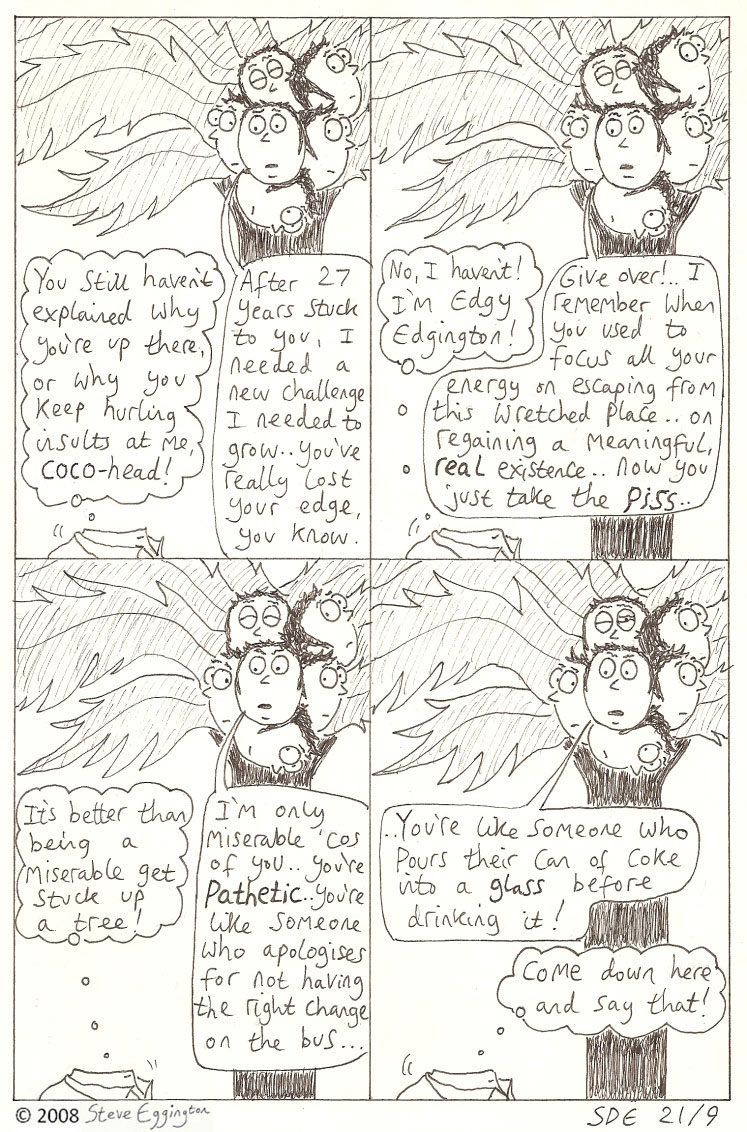 You Still haven't
explained why
you're up there,
or why you
keep hurling
insults at me,
coco-head!
After 27
years stuck
to you, I
needed a
new challenge
I needed to
grow.. you've
really lost
your edge,
you know.
No, I haven't!
I'm Edgy
Edgington!
Give over!.. I
remember when
you used to
focus all your
energy on escaping from
this wretched place.. on
regaining a meaningful,
real existence.. now you
just take the piss..
It's better than
being a
miserable get
stuck up
a tree!
I'm only
miserable 'cos
of you.. you're
Pathetic..you're
like someone
who apologises
for not having
the right change
on the bus...
..You're like someone who
pours their can of coke
into a glass before
drinking it!
Come down here
and say that!
© 2008 Steve Eggington
SDE 21/9